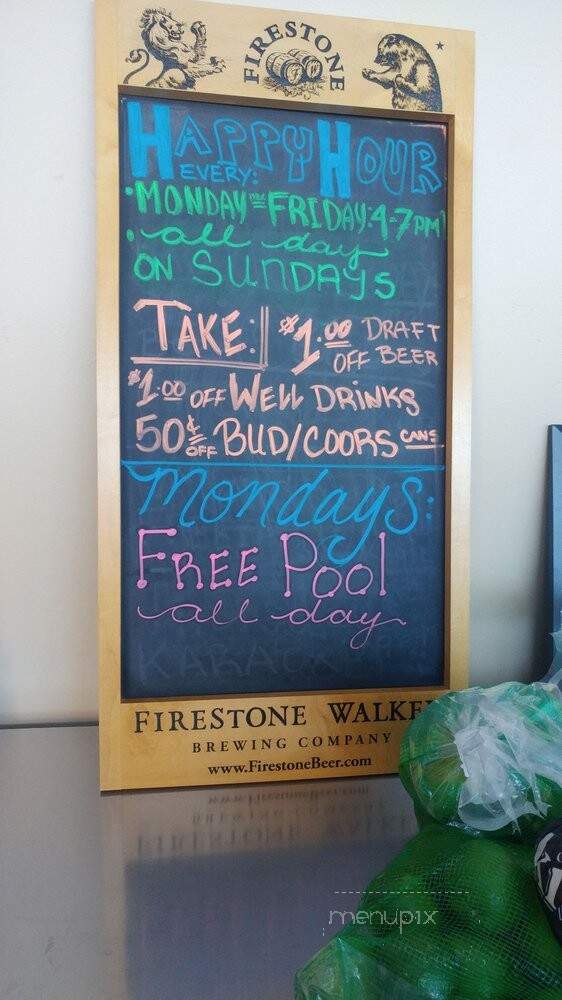 FIRESTONE
HAPPY HOUR
EVERY:
• MONDAY thru FRIDAY: 4-7PM
• all day
ON SUNDAYS
TAKE: $1.00 DRAFT
OFF BEER
$1.00 OFF WELL DRINKS
50¢ OFF BUD/COORS CANS
Mondays:
FREE Pool
all day
KARAOKE
FIRESTONE WALKER
BREWING COMPANY
www.FirestoneBeer.com
menupix